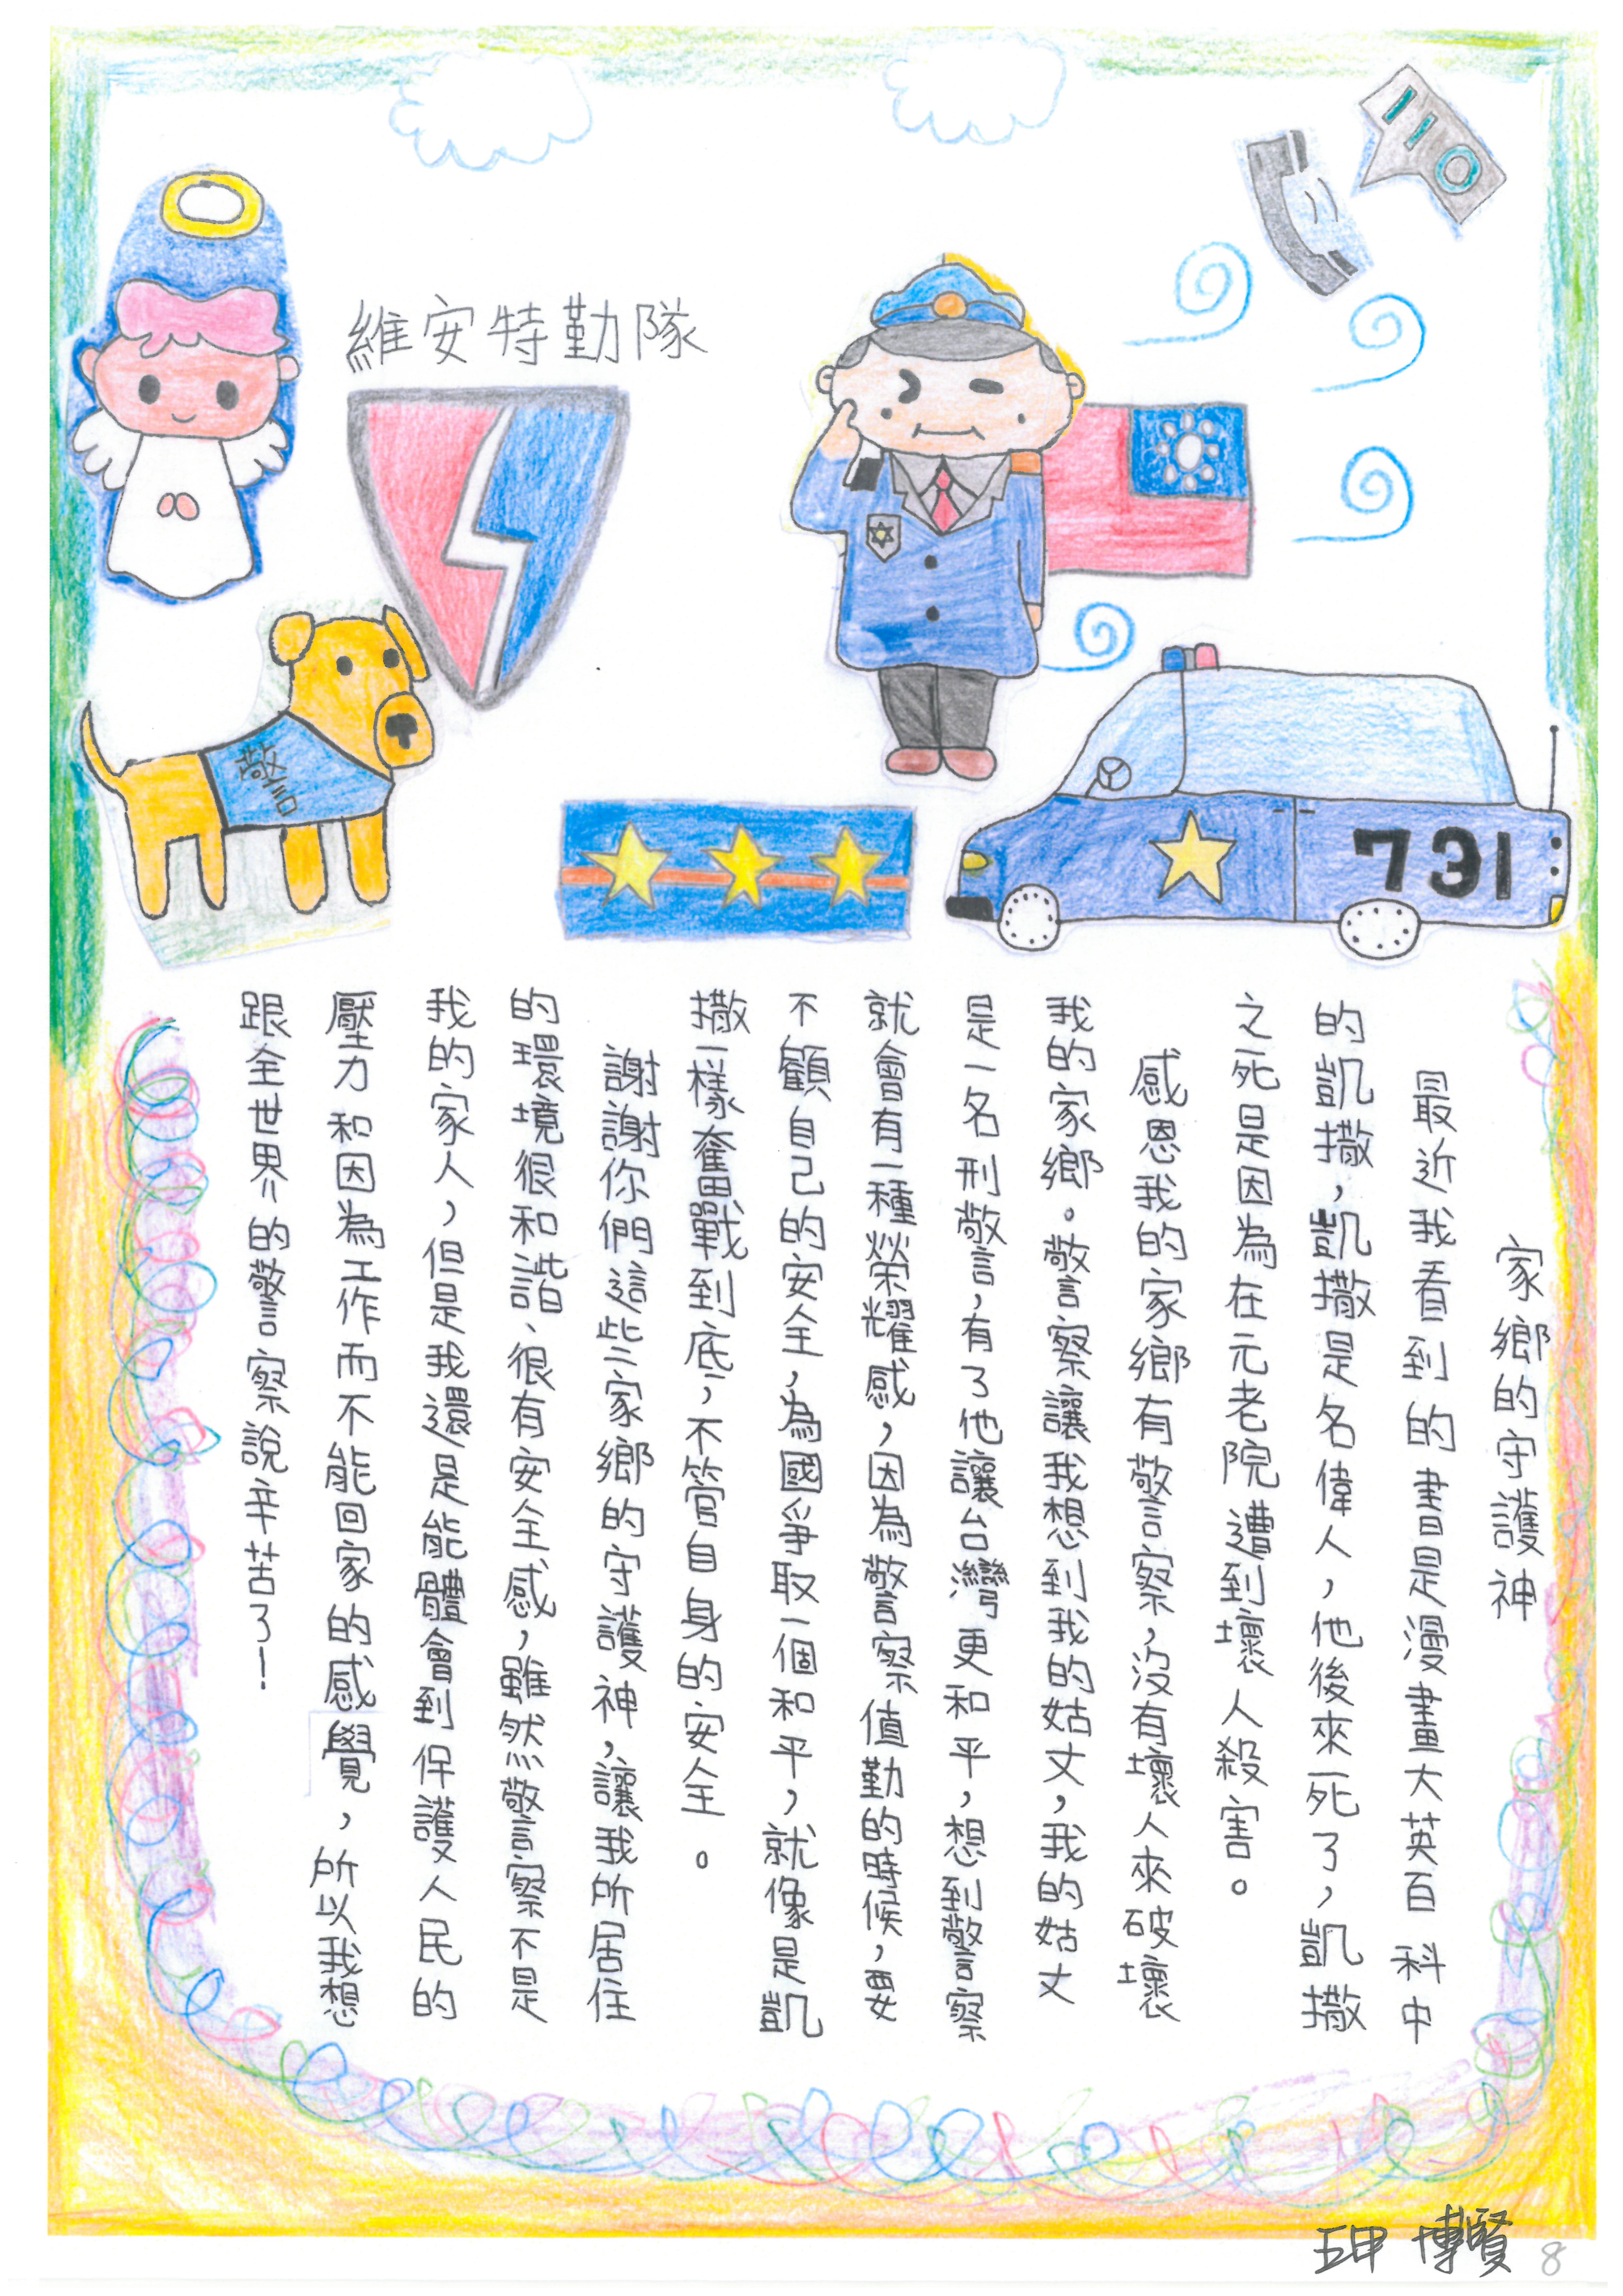 110
維安特勤隊
警
731
家鄉的守護神
最近我看到的書是漫畫大英百科中
的凱撒，凱撒是名偉人，他後來死了，凱撒
之死是因為在元老院遭到壞人殺害。
感恩我的家鄉有警察，沒有壞人來破壞
我的家鄉。警察讓我想到我的姑丈，我的姑丈
是一名刑警，有了他讓台灣更和平，想到警察
就會有一種榮耀感，因為警察值勤的時候，要
不顧自己的安全，為國爭取一個和平，就像是凱
撒一樣奮戰到底，不管自身的安全。
謝謝你們這些家鄉的守護神，讓我所居住
的環境很和諧、很有安全感，雖然警察不是
我的家人，但是我還是能體會到保護人民的
壓力和因為工作而不能回家的感覺，所以我想
跟全世界的警察說辛苦了！
五甲 博賢 8